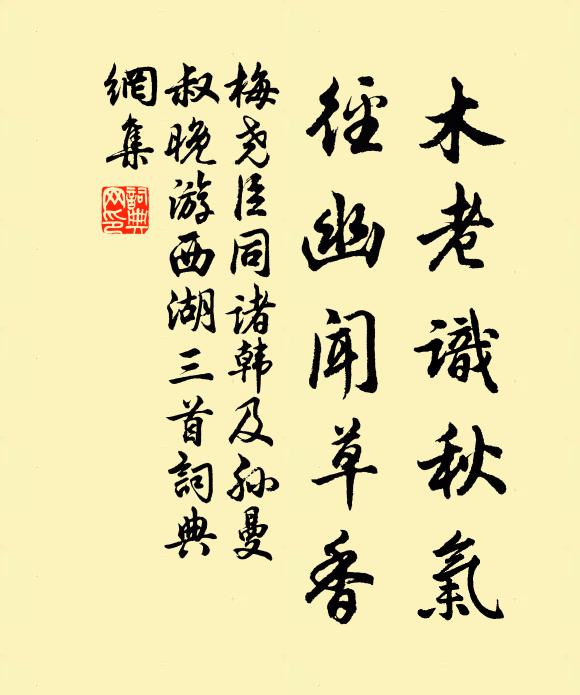 木老識秋氣
徑幽聞草香
梅尧臣同诸韩及孙曼
叔晚游西湖三首詞典
網集
詞典网印